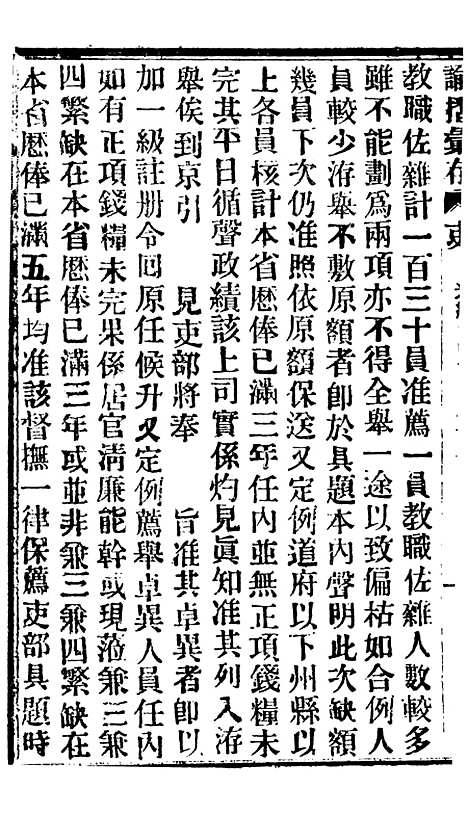 諭摺彙存
教職佐雜計一百三十員准薦一員教職佐雜人數較多
雖不能劃爲兩項亦不得全舉一途以致偏枯如合例人
員較少洊舉不敷原額者卽於具題本內聲明此次缺額
幾員下次仍准照依原額保送又定例道府以下州縣以
上各員核計本省厯俸已滿三年任內並無正項錢糧未
完其平日循聲政績該上司實係灼見眞知准其列入洊
舉俟到京引　見吏部將奉　旨准其卓異者卽以
加一級註册令回原任候升又定例薦舉卓異人員任內
如有正項錢糧未完果係居官淸廉能幹或現蒞兼三兼
四繁缺在本省厯俸已滿三年或並非兼三兼四繁缺在
本省厯俸已滿五年均准該督撫一律保薦吏部具題時